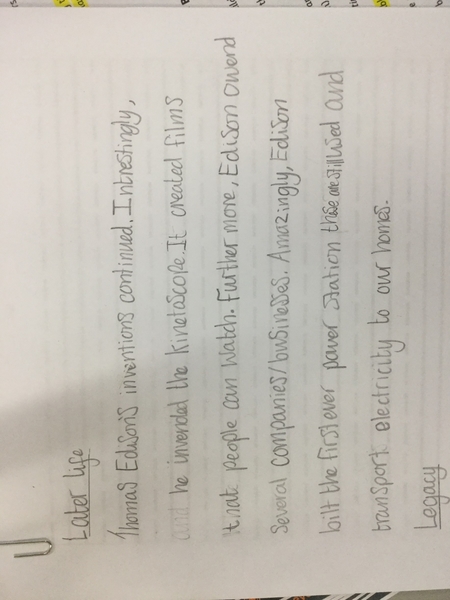 Later life
Thomas Edison's inventions continued. Intrestingly,
and he invended the kinetascope. It created films
that people can watch. Further more, Edison owend
Several companies/businesses. Amazingly, Edison
bilt the first ever power station these are still used and
transport electricity to our homes.
Legacy